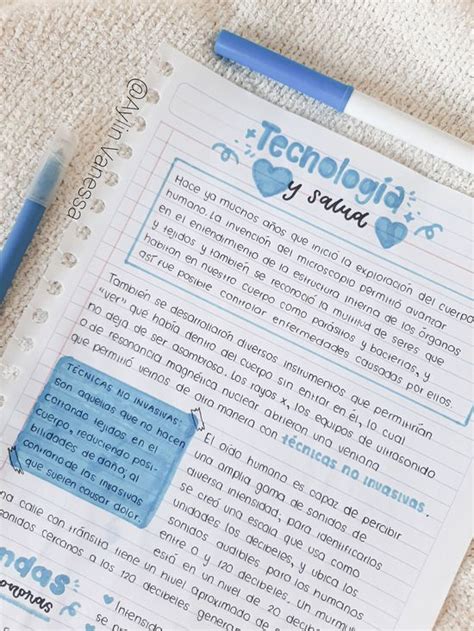 @Aylin Vanessa
Tecnología
y salud
Hace ya muchos años que inició la exploración del cuerpo
humano. La invención del microscopio permitió avanzar
en el entendimiento de la estructura interna de los órganos
y tejidos y también se reconoció la multitud de seres que
habitan en nuestro cuerpo como parásitos y bacterias, y
así fue posible controlar enfermedades causadas por ellos
También se desarrollaron diversos instrumentos que permitirían
"ver" qué había dentro del cuerpo sin entrar en él, lo cual
no deja de ser asombroso. Los rayos x, los equipos de ultrasonido
o de resonancia magnética nuclear abrieron una ventana
que permitió vernos de otra manera con técnicas no invasivas.
TÉCNICAS NO INVASIVAS:
son aquellas que no hacen
cortando tejidos en el
cuerpo, reduciendo posi-
bilidades de daño, al
contrario de las invasivas
que suelen causar dolor.
El oído humano es capaz de percibir
una amplia gama de sonidos de
diversa intensidad, para identificarlos
se creó una escala que usa como
unidades los decibeles, y ubica los
sonidos audibles para los humanos
entre 0 y 120 decibeles. Un murmullo
está en un nivel de 20 decibeles
a calle con tránsito tiene un nivel aproximado de
sonidos cercanos a los 120 decibeles genera
ndas
sonoras
Intensidad